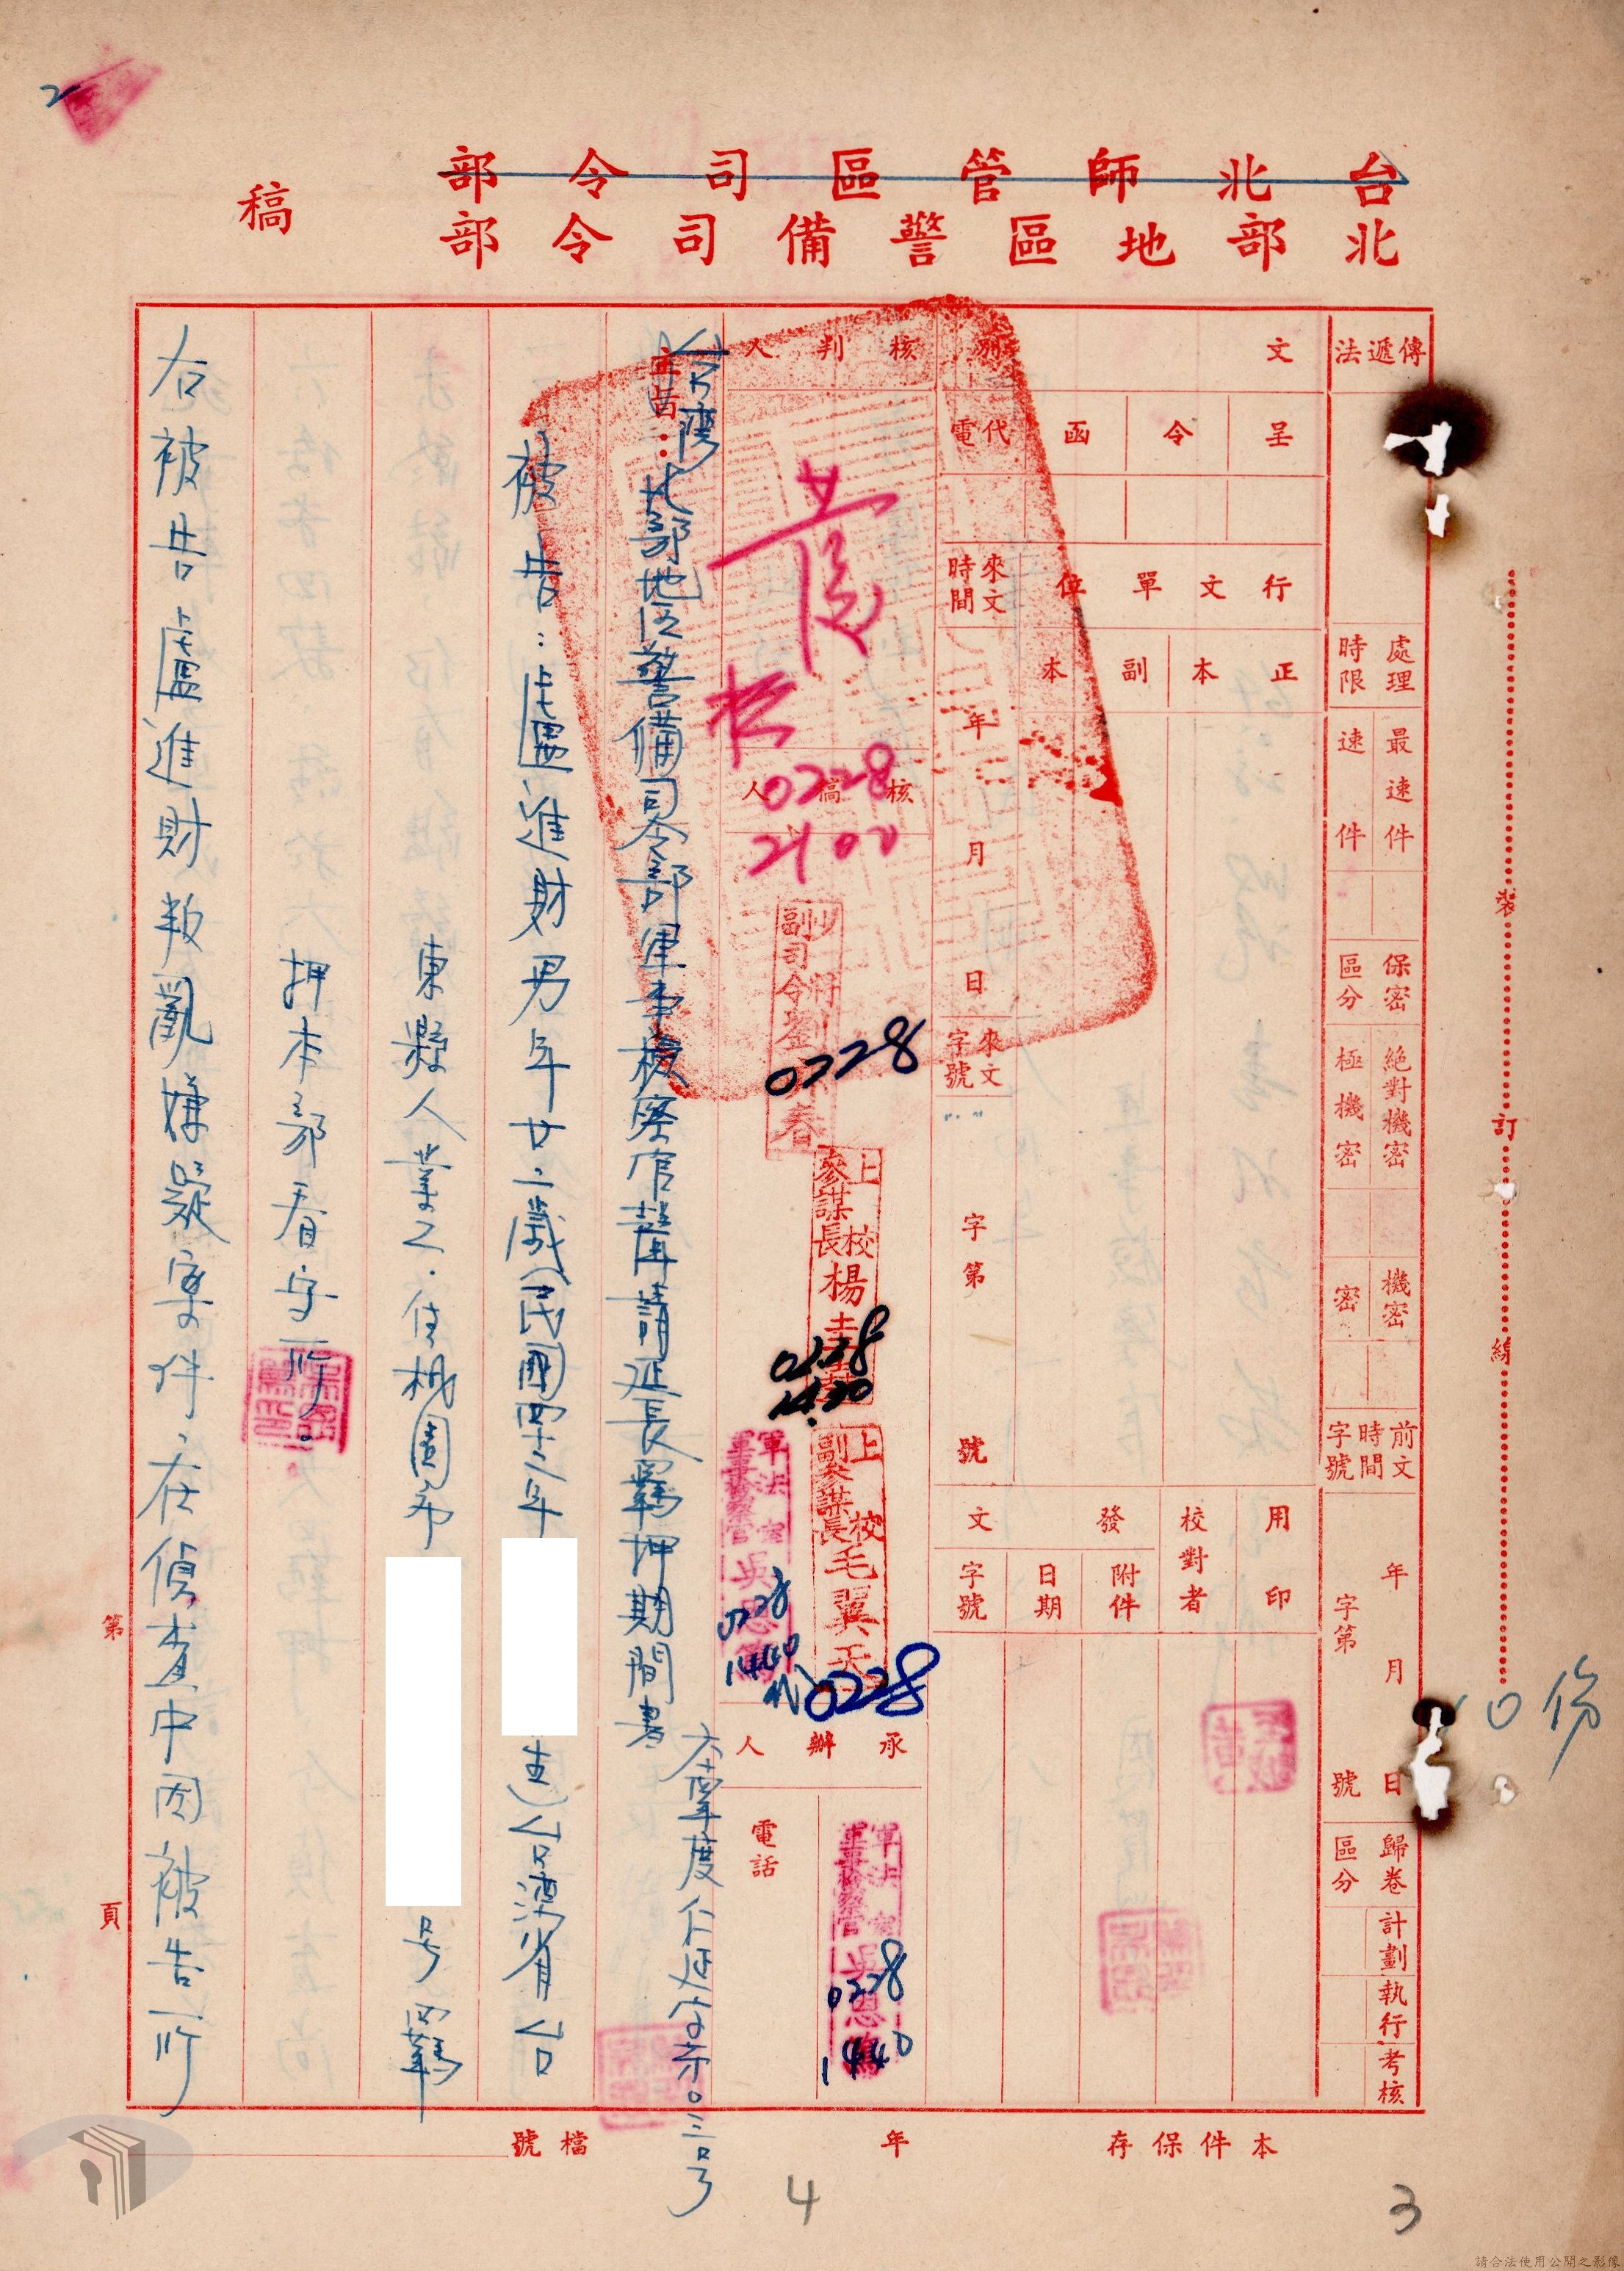 台北師管區司令部
北部地區警備司令部
稿
2
傳遞法
處理時限
最速件
速件
保密區分
絕對機密
極機密
機密
密
前文時間字號
年 月 日
字第 號
歸卷區分
計劃執行考核
文別
呈
令
函
代電
行文單位
正本
副本
來文時間
年 月 日
來文字號
字第 號
用印
校對者
發文
附件
日期
字號
核判人
核稿人
0228
2100
副司令
0228
上校參謀長楊
0228
上校副參謀長毛翼天
0228
軍法室軍事檢察官吳恩
0228
1440
代
承辦人
電話
軍法室軍事檢察官吳恩
0228
1440
主旨:
台灣北部地区警備司令部軍事檢察官聲請延長羈押期間書
仁延字第0三号
被告:盧進財男年廿二歲(民國四十二年
生)台湾省台
東縣人業工.住桃園市
号羈
押本部看守所。
右被告盧進財叛亂嫌疑案件,在偵查中因被告所
裝訂線
10份
第 頁
本件保存 年
檔號
4
3
請合法使用公開之影像